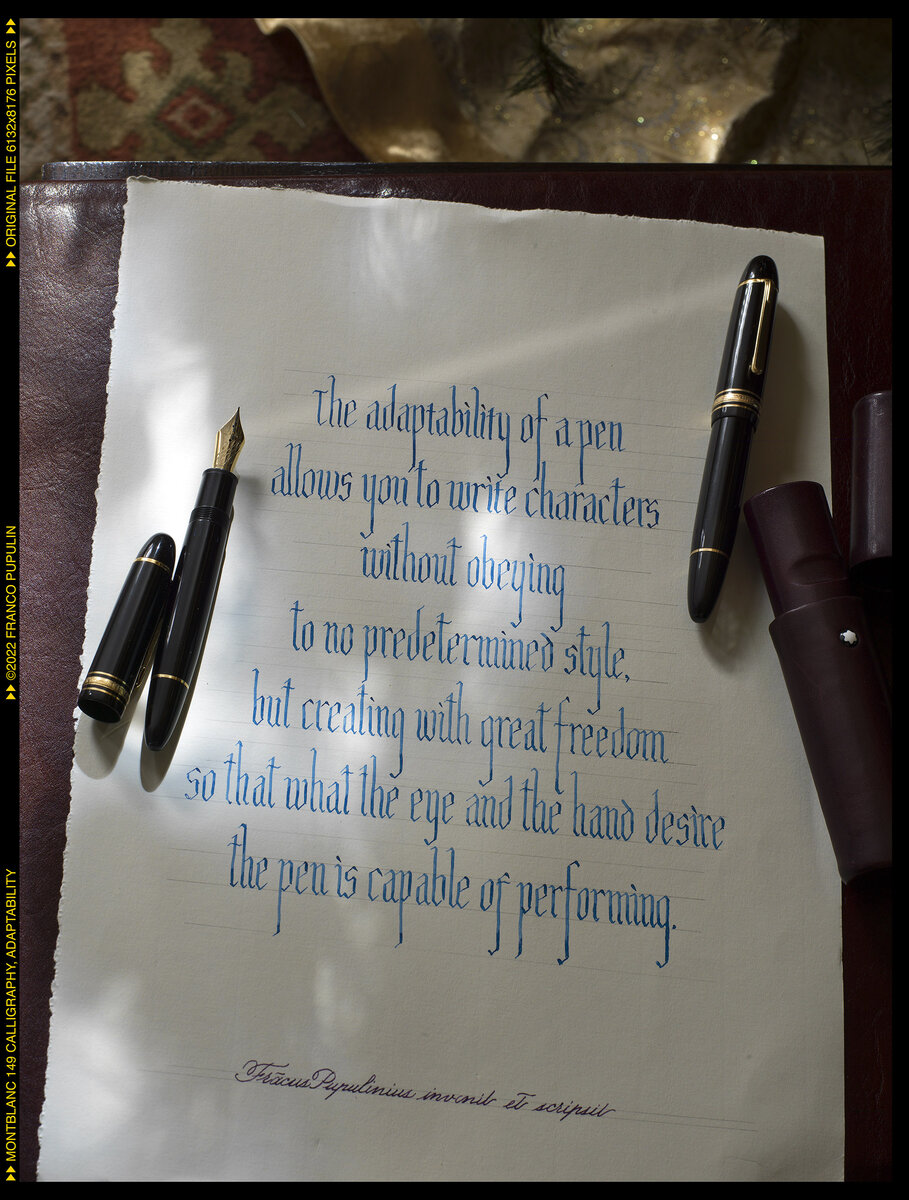 The adaptability of a pen
allows you to write characters
without obeying
to no predetermined style,
but creating with great freedom
so that what the eye and the hand desire
the pen is capable of performing.
Frācus Pupulinius invenit et scripsit
MONTBLANC 149 CALLIGRAPHY, ADAPTABILITY
©2022 FRANCO PUPULIN
ORIGINAL FILE 6132x8176 PIXELS